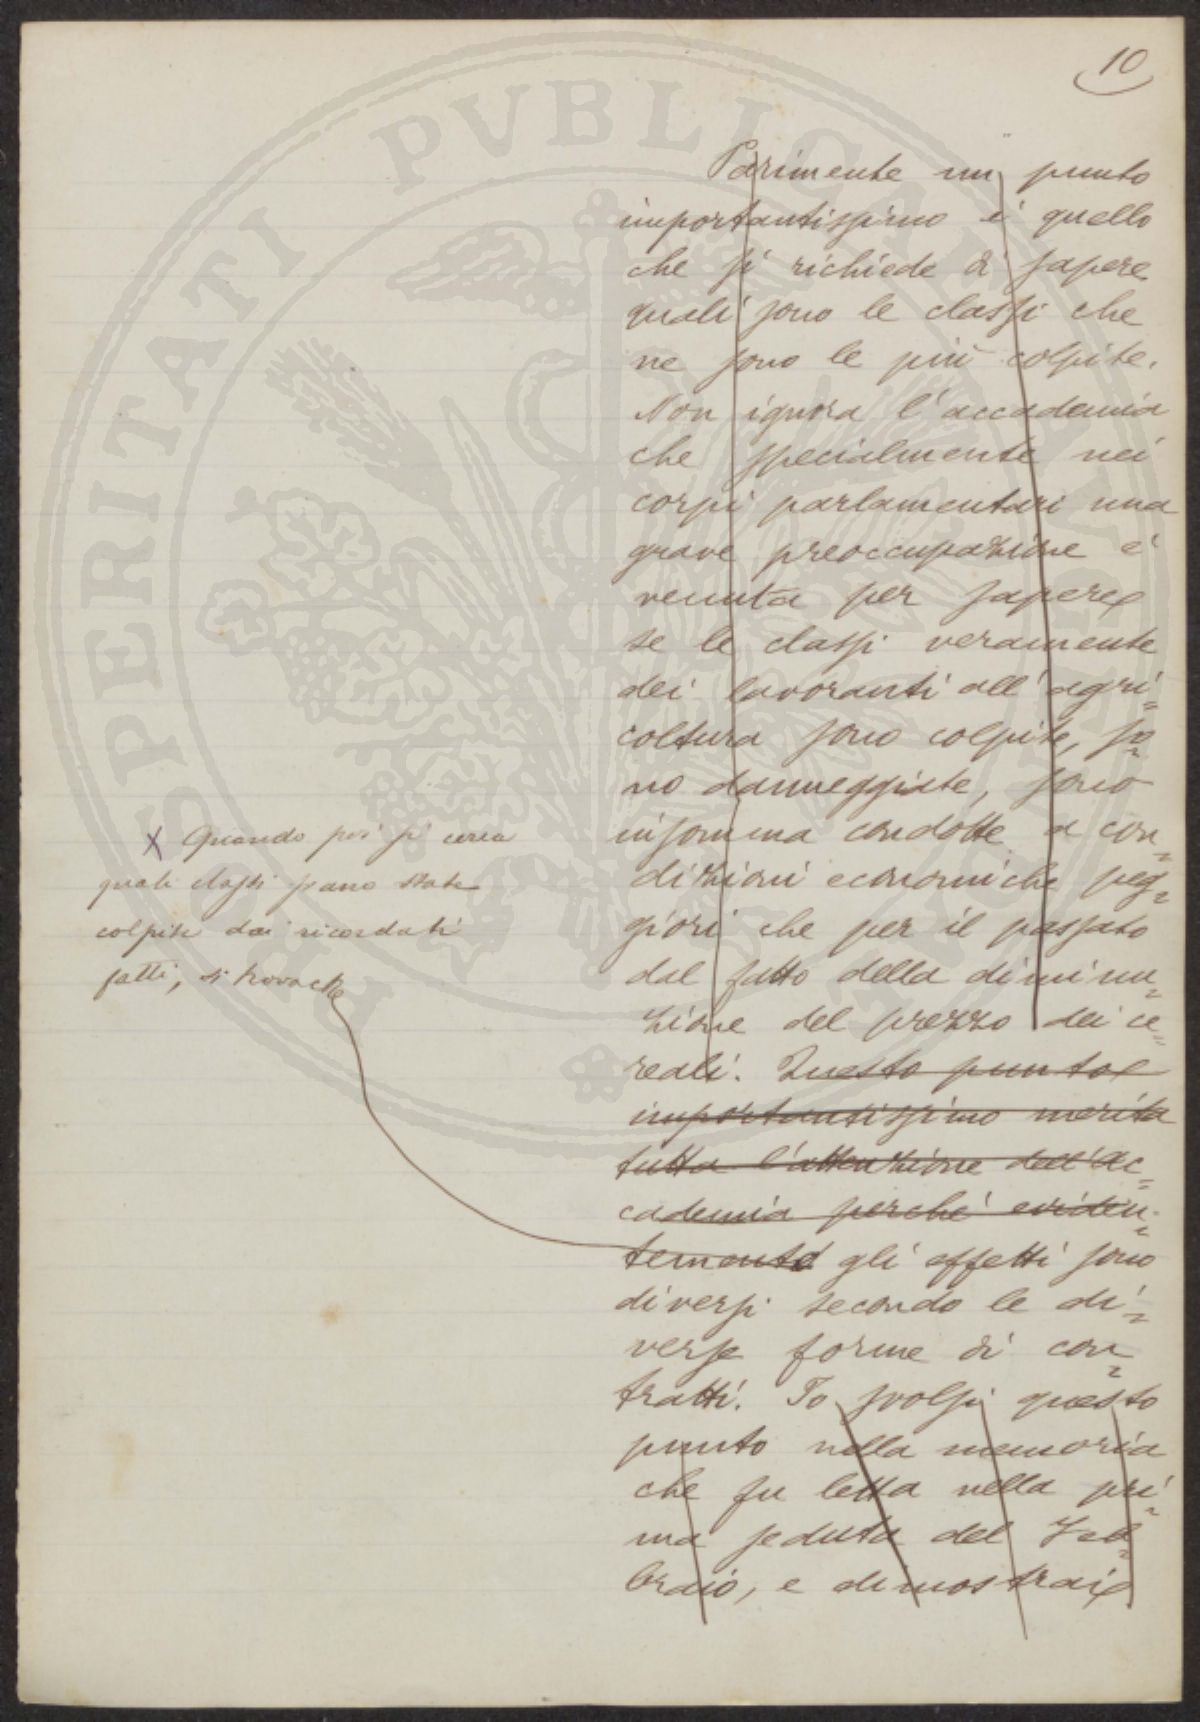 10
Parimente un punto
importantissimo è quello
che si richiede di sapere
quali sono le classi che
ne sono le più colpite.
Non ignora l'accademia
che specialmente nei
corpi parlamentari una
grave preoccupazione è
venuta per sapere
se le classi veramente
dei lavoranti all'agri=
coltura sono colpite, so=
no danneggiate, sono
insomma condotte a con=
dizioni economiche peg=
giori che per il passato
dal fatto della diminu=
zione del prezzo dei ce=
reali. Questo punto
importantissimo merita
tutta l'attenzione dell'Ac=
cademia perché eviden=
temente gli effetti sono
diversi secondo le di=
verse forme di con=
tratti. Io svolsi questo
punto nella memoria
che fu letta nella pri=
ma seduta del Feb=
braio, e dimostrai
X Quando poi si cerca
quali classi siano state
colpite dai ricordati
fatti, si trova che
PROSPERITATI PVBLICAE